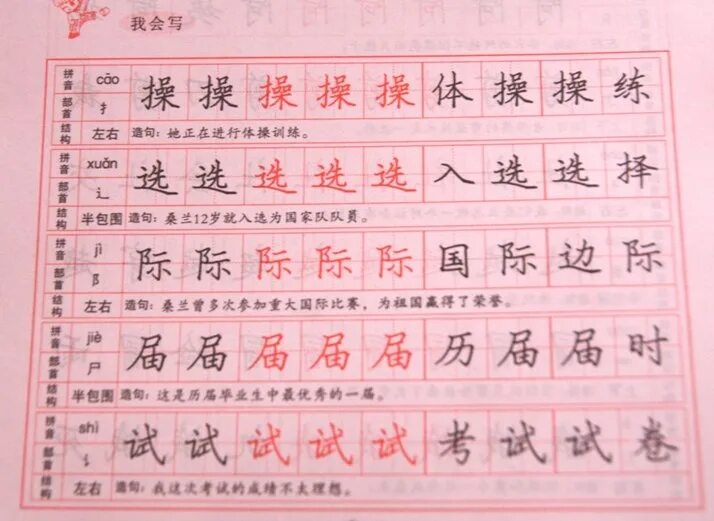 我会写
拼音 cāo 操 操 操 操 操 体 操 操 练
部首 扌
结构 左右 造句：她正在进行体操训练。
拼音 xuǎn 选 选 选 选 选 入 选 选 择
部首 辶
结构 半包围 造句：桑兰12岁就入选为国家队队员。
拼音 jì 际 际 际 际 际 国 际 边 际
部首 阝
结构 左右 造句：桑兰曾多次参加重大国际比赛，为祖国赢得了荣誉。
拼音 jiè 届 届 届 届 届 历 届 届 时
部首 尸
结构 半包围 造句：这是历届毕业生中最优秀的一届。
拼音 shì 试 试 试 试 试 考 试 试 卷
部首 讠
结构 左右 造句：我这次考试的成绩不太理想。